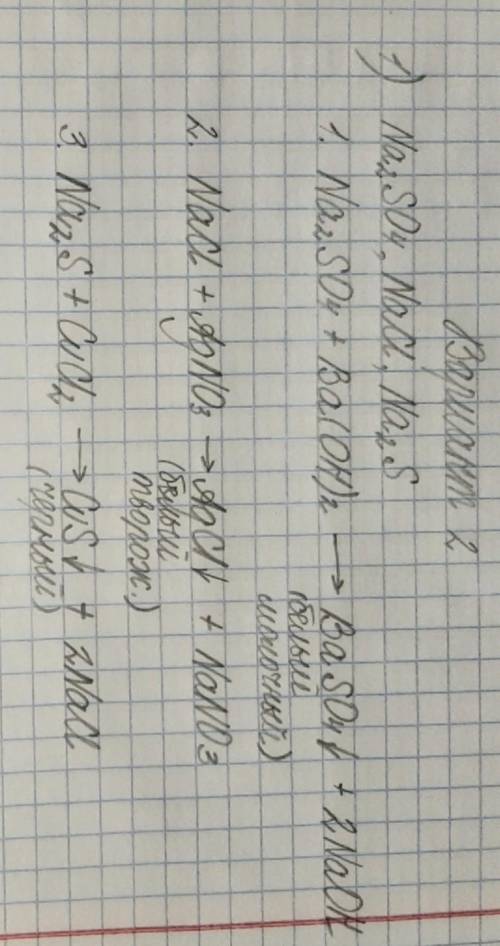 Вариант 2
1) Na₂SO₄, NaCl, Na₂S
1. Na₂SO₄ + Ba(OH)₂ → BaSO₄↓ + 2NaOH
(белый
молочный)
2. NaCl + AgNO₃ → AgCl↓ + NaNO₃
(белый
творож.)
3. Na₂S + CuCl₂ → CuS↓ + 2NaCl
(черный)